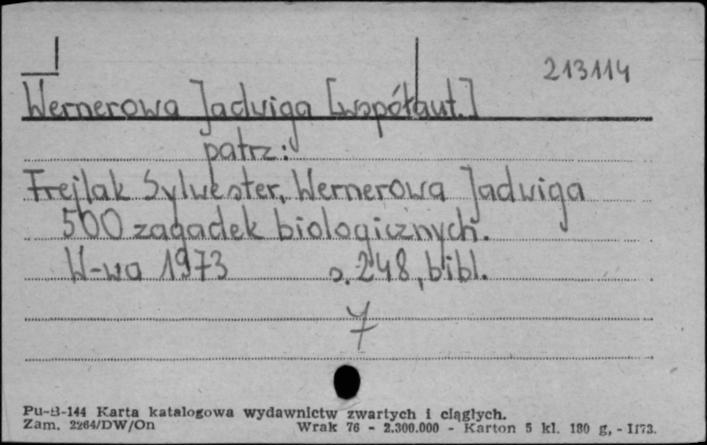 213114
Wernerowa Jadwiga [współaut.]
patrz:
Frejlak Sylwester, Wernerowa Jadwiga
500 zagadek biologicznych.
W-wa 1973 s. 248, bibl.
Pu-B-144 Karta katalogowa wydawnictw zwartych i ciągłych.
Zam. 2264/DW/On Wrak 76 - 2.300.000 - Karton 5 kl. 180 g, - I173.